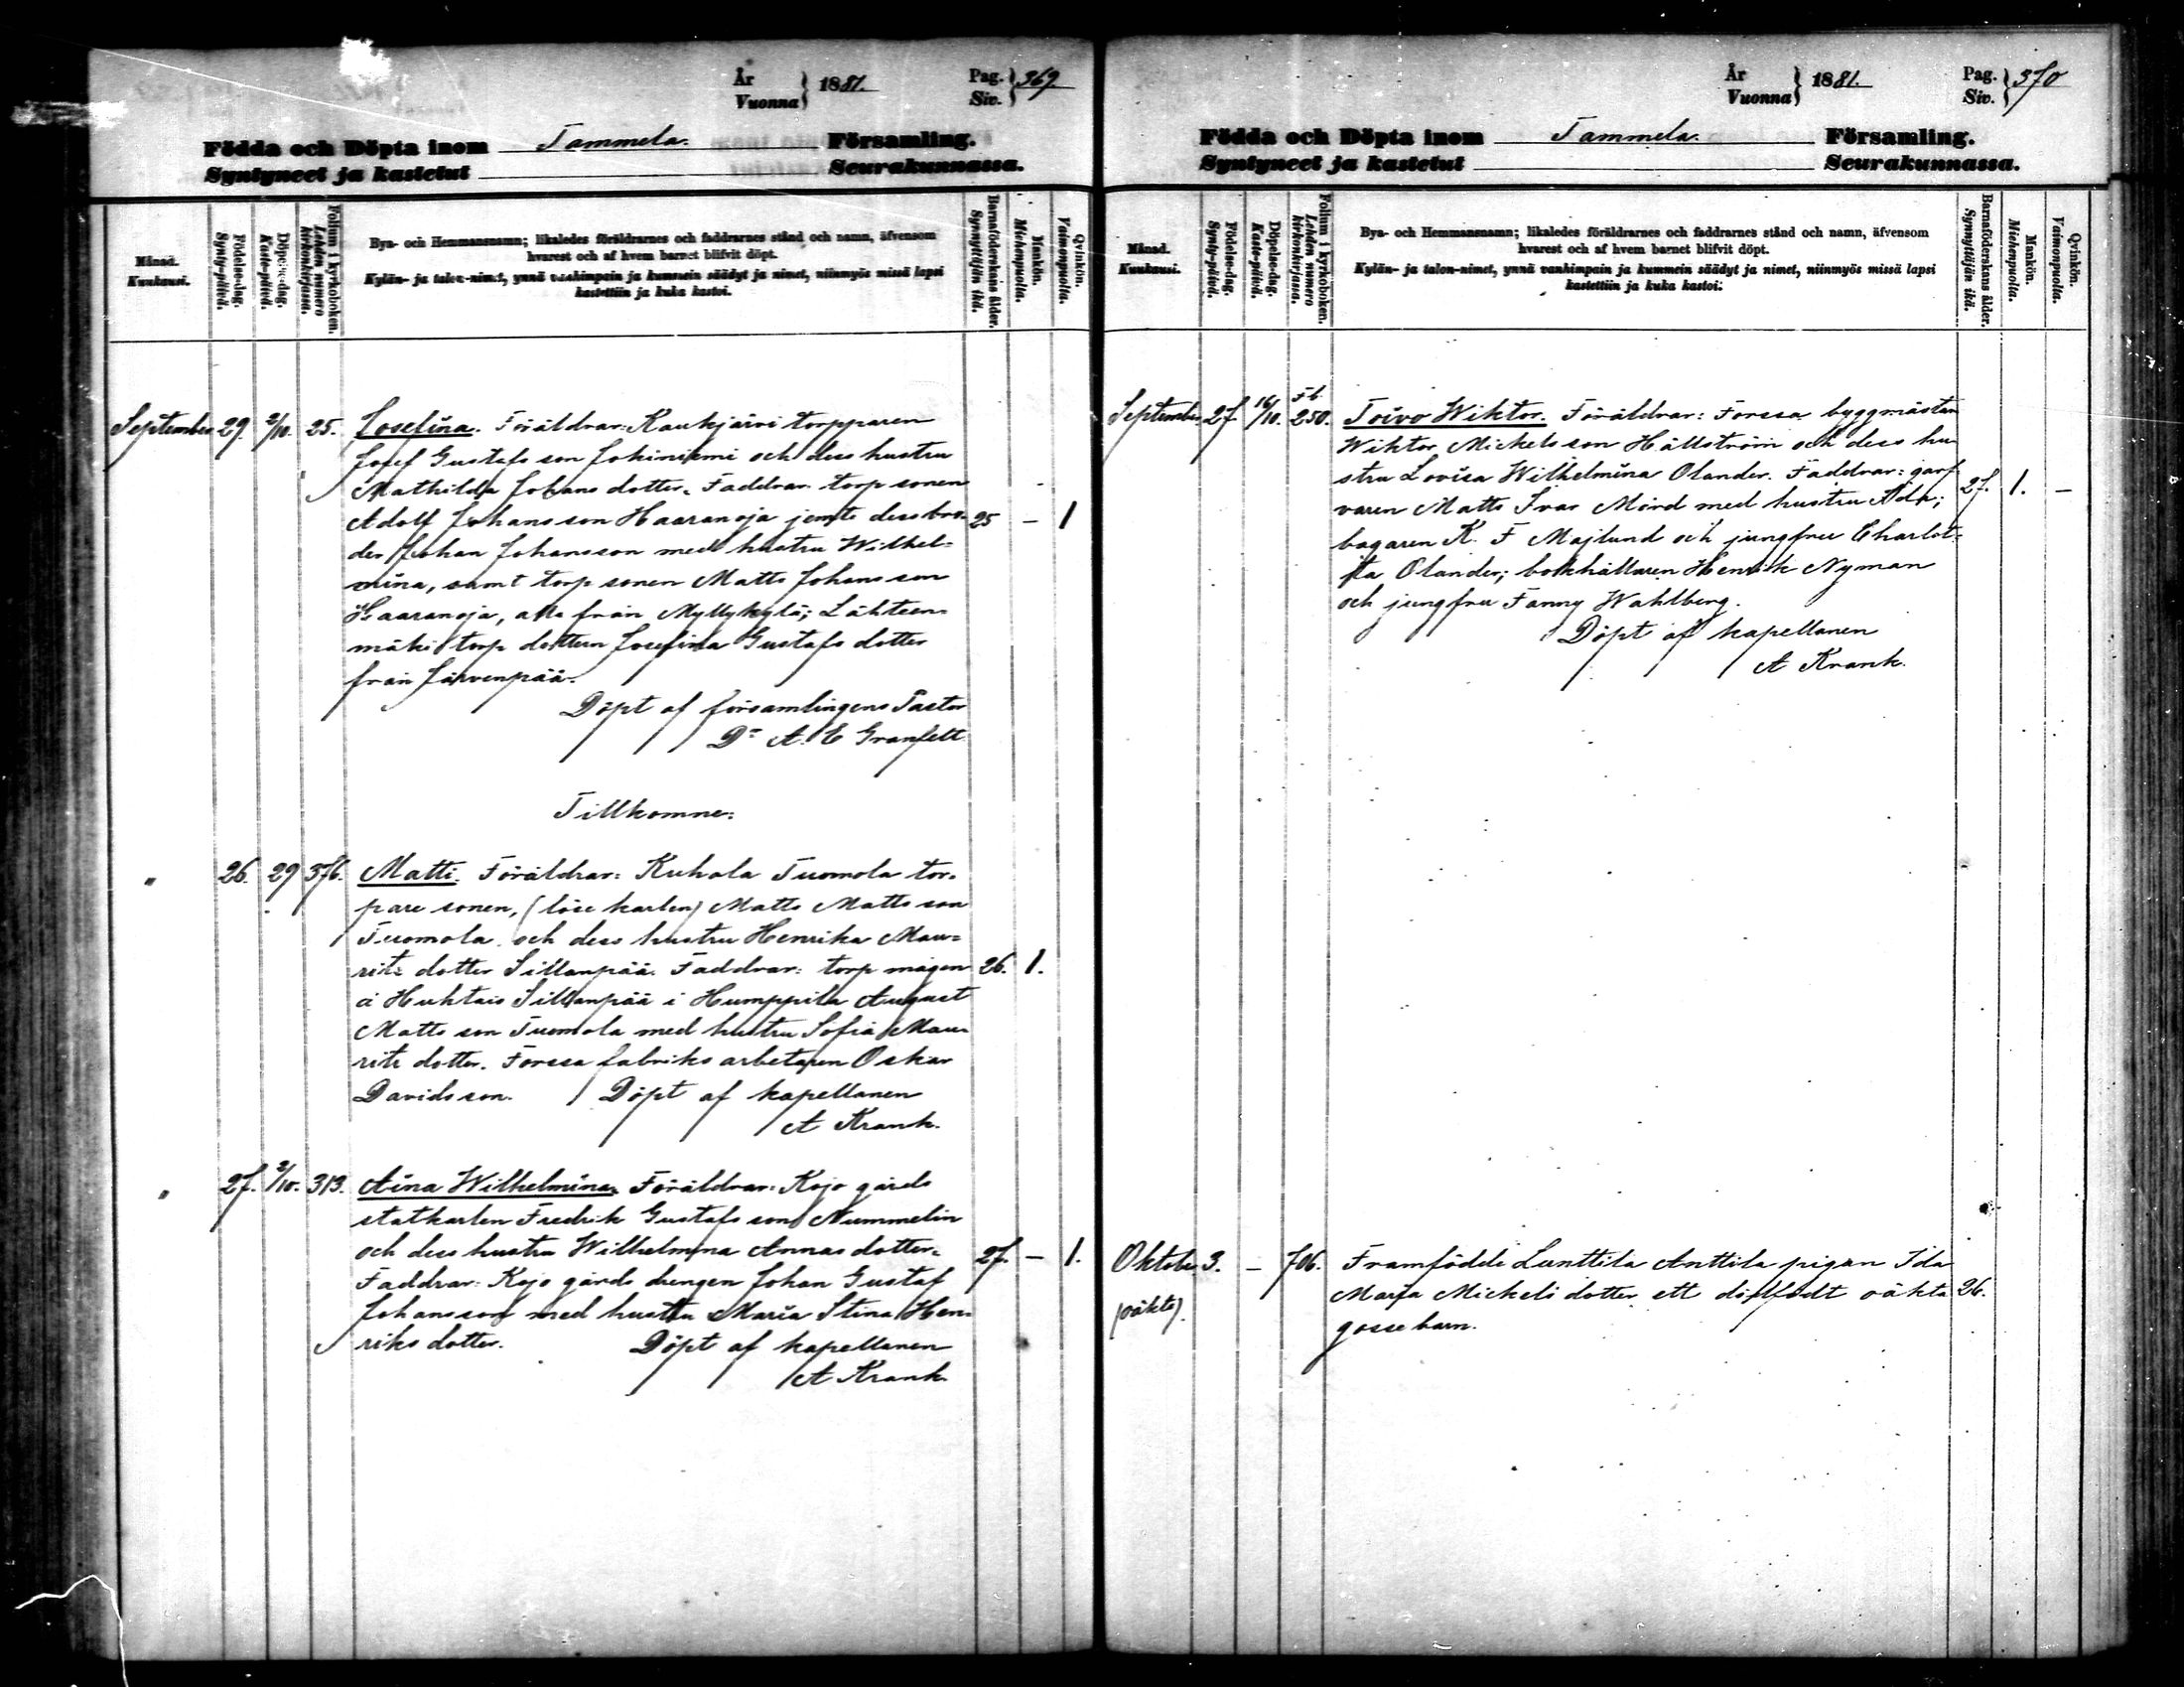 År
Vuonna } 1881. Pag.
Siv. } 369
Födda och Döpta inom Tammela. Församling.
Syntyneet ja kastetut Seurakunnassa.
Månad.
Kuukausi.
Födelse-dag.
Synty-päivä.
Döpelse-dag.
Kaste-päivä.
Folium i kyrkoboken.
Lehden numero
kirkonkirjassa.
Bya- och Hemmansnamn; likaledes föräldrarnes och faddrarnes stånd och namn, äfvensom
hvarest och af hvem barnet blifvit döpt.
Kylän- ja talon-nimet, ynnä vanhimpain ja kummein säädyt ja nimet, niinmyös missä lapsi
kastettiin ja kuka kastoi.
Barnaföderskans ålder.
Synnyttäjän ikä.
Mankön.
Miehenpuolia.
Qvinkön.
Vaimonpuolia.
September 29. 2/10. 25. Josefina. Föräldrar: Kaukjärvi torpparen
Josef Gustafs son Jokiniemi och dess hustru
Mathilda Johans dotter. Faddrar torp sonen
Adolf Johans son Haaranoja jemte dess bro- 25 — 1
der Johan Johansson med hustru Wilhel-
mina, samt torp sonen Matts Johans son
Haaranoja, alla från Myllykylä; Lähteen-
mäki torp dottern Josefina Gustafs dotter
från Järvenpää.
Döpt af församlingens Pastor
Dr A. E Granfelt
Tillkomne:
" 26. 29 376. Matti. Föräldrar: Kuhala Tuomola tor-
pare sonen, (löse karlen) Matts Matts son
Tuomola och dess hustru Henrika Mau-
rits dotter Sillanpää. Faddrar: torp mågen 26. 1.
å Huhtais Sillanpää i Humppila August
Matts son Tuomola med hustru Sofia Mau-
rits dotter. Forssa fabriks arbetaren Oskar
Davidsson. Döpt af kapellanen
A Krank.
" 27. 2/10. 313. Aina Wilhelmina. Föräldrar: Kojo gårds
statkarlen Fredrik Gustafs son Nummelin
och dess hustru Wilhelmina Annas dotter. 27. — 1.
Faddrar: Kojo gårds drengen Johan Gustaf
Johansson med hustru Maria Stina Hen-
riks dotter. Döpt af kapellanen
A Krank.
År
Vuonna } 1881. Pag.
Siv. } 370
Födda och Döpta inom Tammela. Församling.
Syntyneet ja kastetut Seurakunnassa.
Månad.
Kuukausi.
Födelse-dag.
Synty-päivä.
Döpelse-dag.
Kaste-päivä.
Folium i kyrkoboken.
Lehden numero
kirkonkirjassa.
Bya- och Hemmansnamn; likaledes föräldrarnes och faddrarnes stånd och namn, äfvensom
hvarest och af hvem barnet blifvit döpt.
Kylän- ja talon-nimet, ynnä vanhimpain ja kummein säädyt ja nimet, niinmyös missä lapsi
kastettiin ja kuka kastoi.
Barnaföderskans ålder.
Synnyttäjän ikä.
Mankön.
Miehenpuolia.
Qvinkön.
Vaimonpuolia.
September 27 16/10. Fb. 250. Toivo Wiktor. Föräldrar: Forssa byggmästaren
Wiktor Mickels son Hällström och dess hu-
stru Lovisa Wilhelmina Olander. Faddrar: garf-
varen Matts Ivar Mörd med hustru Ada; 27. 1. —
bagaren K. F Majlund och jungfru Charlot-
ta Olander; bokhållaren Henrik Nyman
och jungfru Fanny Wahlberg.
Döpt af kapellanen
A Krank.
Oktober 3. — 706. Framfödde Lunttila Anttila pigan Ida
(oäkta). Maria Mickels dotter ett dödfödt oäkta 26.
gossebarn.